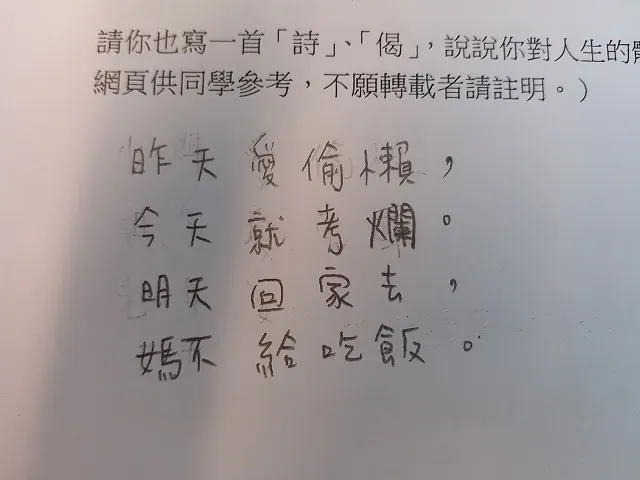 請你也寫一首「詩」、「偈」，說說你對人生的體
網頁供同學參考，不願轉載者請註明。）
昨天愛偷懶，
今天就考爛。
明天回家去，
媽不給吃飯。